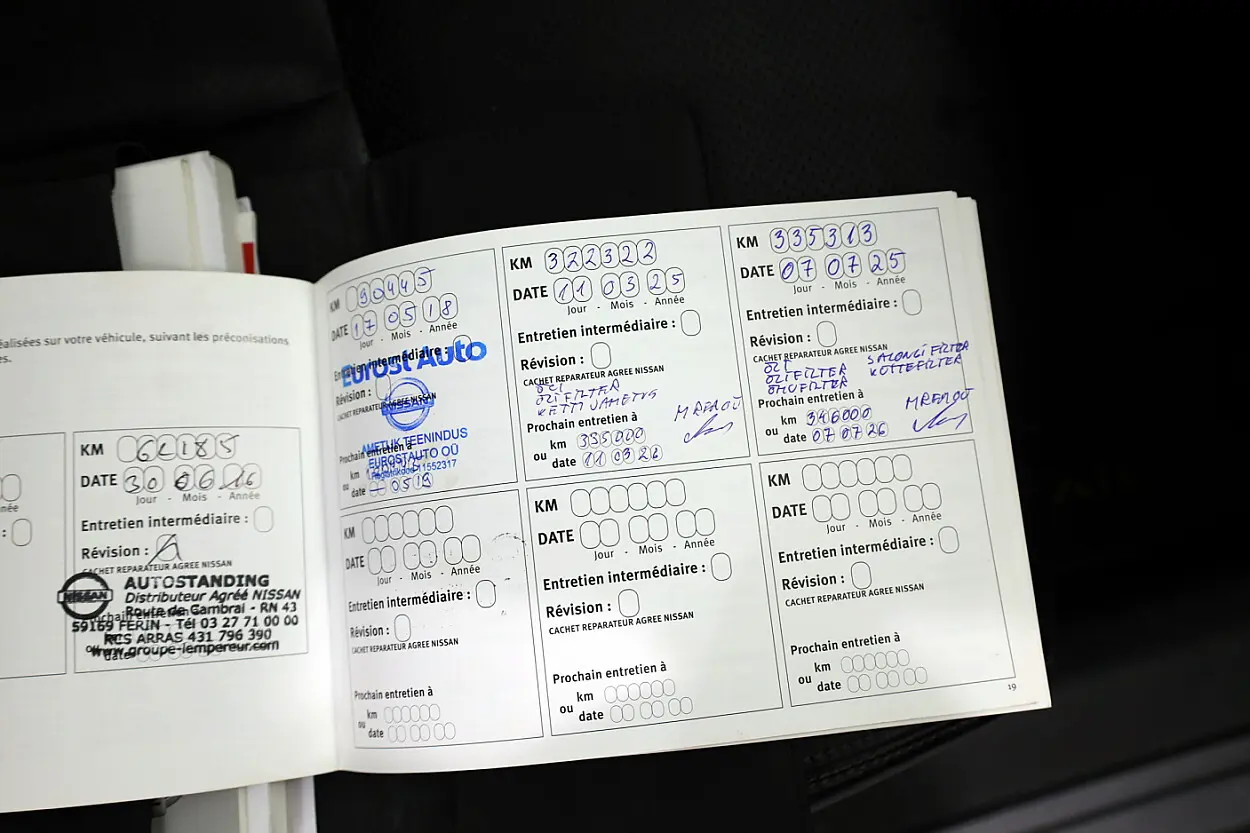 éalisées sur votre véhicule, suivant les préconisations
es.
née
:
KM 62185
DATE 30 06 16
Jour - Mois - Année
Entretien intermédiaire :
Révision :
CACHET REPARATEUR AGREE NISSAN
NISSAN
AUTOSTANDING
Distributeur Agréé NISSAN
Route de Cambrai - RN 43
59169 FERIN - Tél 03 27 71 00 00
RCS ARRAS 431 796 390
www.groupe-lempereur.com
date
KM 90445
DATE 17 05 18
Jour - Mois - Année
Entretien intermédiaire :
Eurost Auto
Révision :
NISSAN
CACHET REPARATEUR AGREE NISSAN
AMETLIK TEENINDUS
Prochain entretien à
EUROSTAUTO OÜ
km
Registrikood 11552317
ou
date 05 19
KM 322322
DATE 11 03 25
Jour - Mois - Année
Entretien intermédiaire :
Révision :
CACHET REPARATEUR AGREE NISSAN
ÕLI
ÕLIFILTER
KETTI VAHETUS
Prochain entretien à
km 335000
ou
date 11 03 26
KM 335313
DATE 07 07 25
Jour - Mois - Année
Entretien intermédiaire :
Révision :
CACHET REPARATEUR AGREE NISSAN
ÕLI SALONGI FILTER
ÕLIFILTER KÜTTEFILTER
ÕHUFILTER
Prochain entretien à
km 346000
ou
date 07 07 26
KM
DATE
Jour - Mois - Année
Entretien intermédiaire :
Révision :
CACHET REPARATEUR AGREE NISSAN
Prochain entretien à
km
ou
date
KM
DATE
Jour - Mois - Année
Entretien intermédiaire :
Révision :
CACHET REPARATEUR AGREE NISSAN
Prochain entretien à
km
ou
date
KM
DATE
Jour - Mois - Année
Entretien intermédiaire :
Révision :
CACHET REPARATEUR AGREE NISSAN
Prochain entretien à
km
ou
date
19